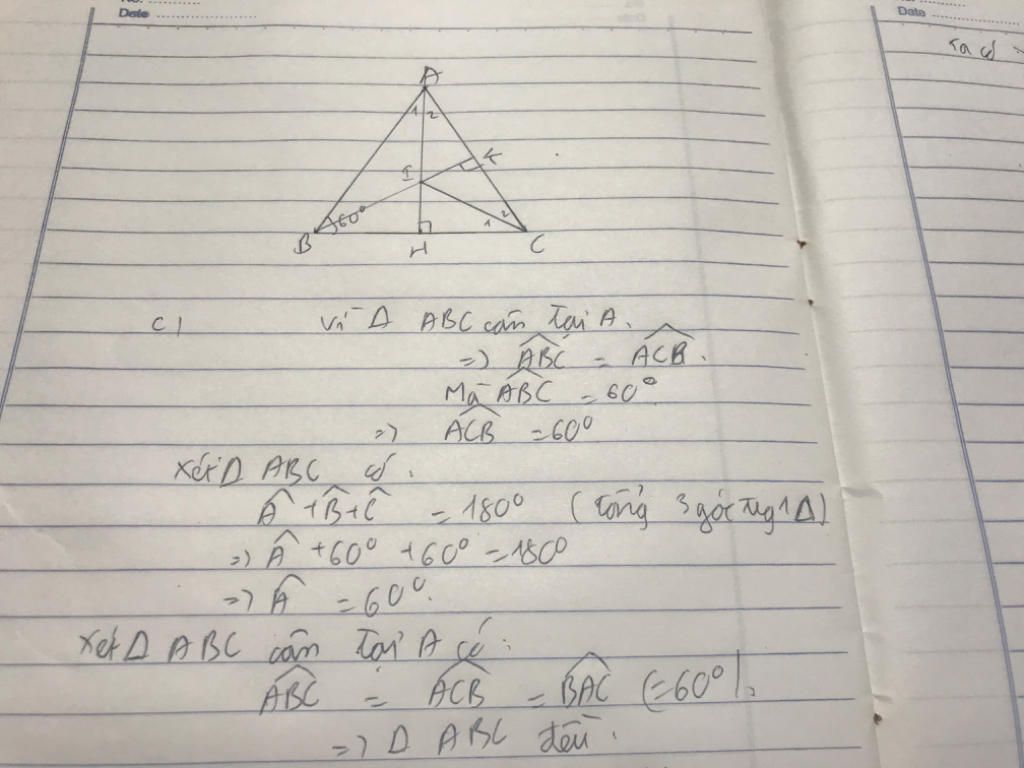 No.
Date
Date
Ta có
A
1 2
I
K
60°
2
1
B
H
C
c)
Vì Δ ABC cân tại A.
=> ABC = ACB.
Mà ABC = 60°
=> ACB = 60°
Xét Δ ABC có.
A + B + C = 180° (tổng 3 góc trg 1 Δ)
=> A + 60° + 60° = 180
=> A = 60°.
Xét Δ ABC cân tại A có:
ABC = ACB = BAC (=60°).
=> Δ ABC đều.